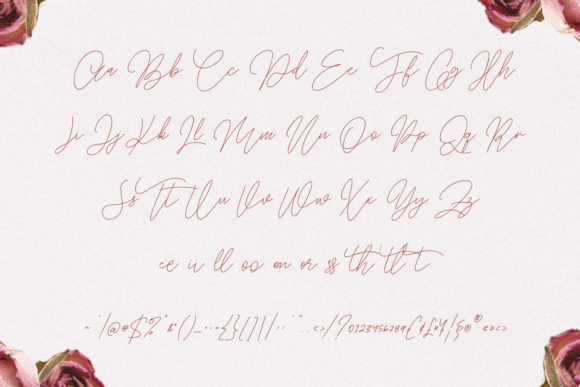 Aa Bb Cc Dd Ee Ff Gg Hh
Ii Jj Kk Ll Mm Nn Oo Pp Qq Rr
Ss Tt Uu Vv Ww Xx Yy Zz
ee ii ll oo on or ss th tl t
@#$% &*()_ {}[]|/ <>/?0123456789